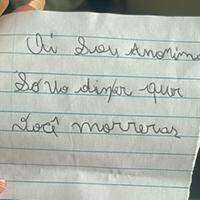 Oi Sou Anonimo
Só vo dizer que
Você morreras